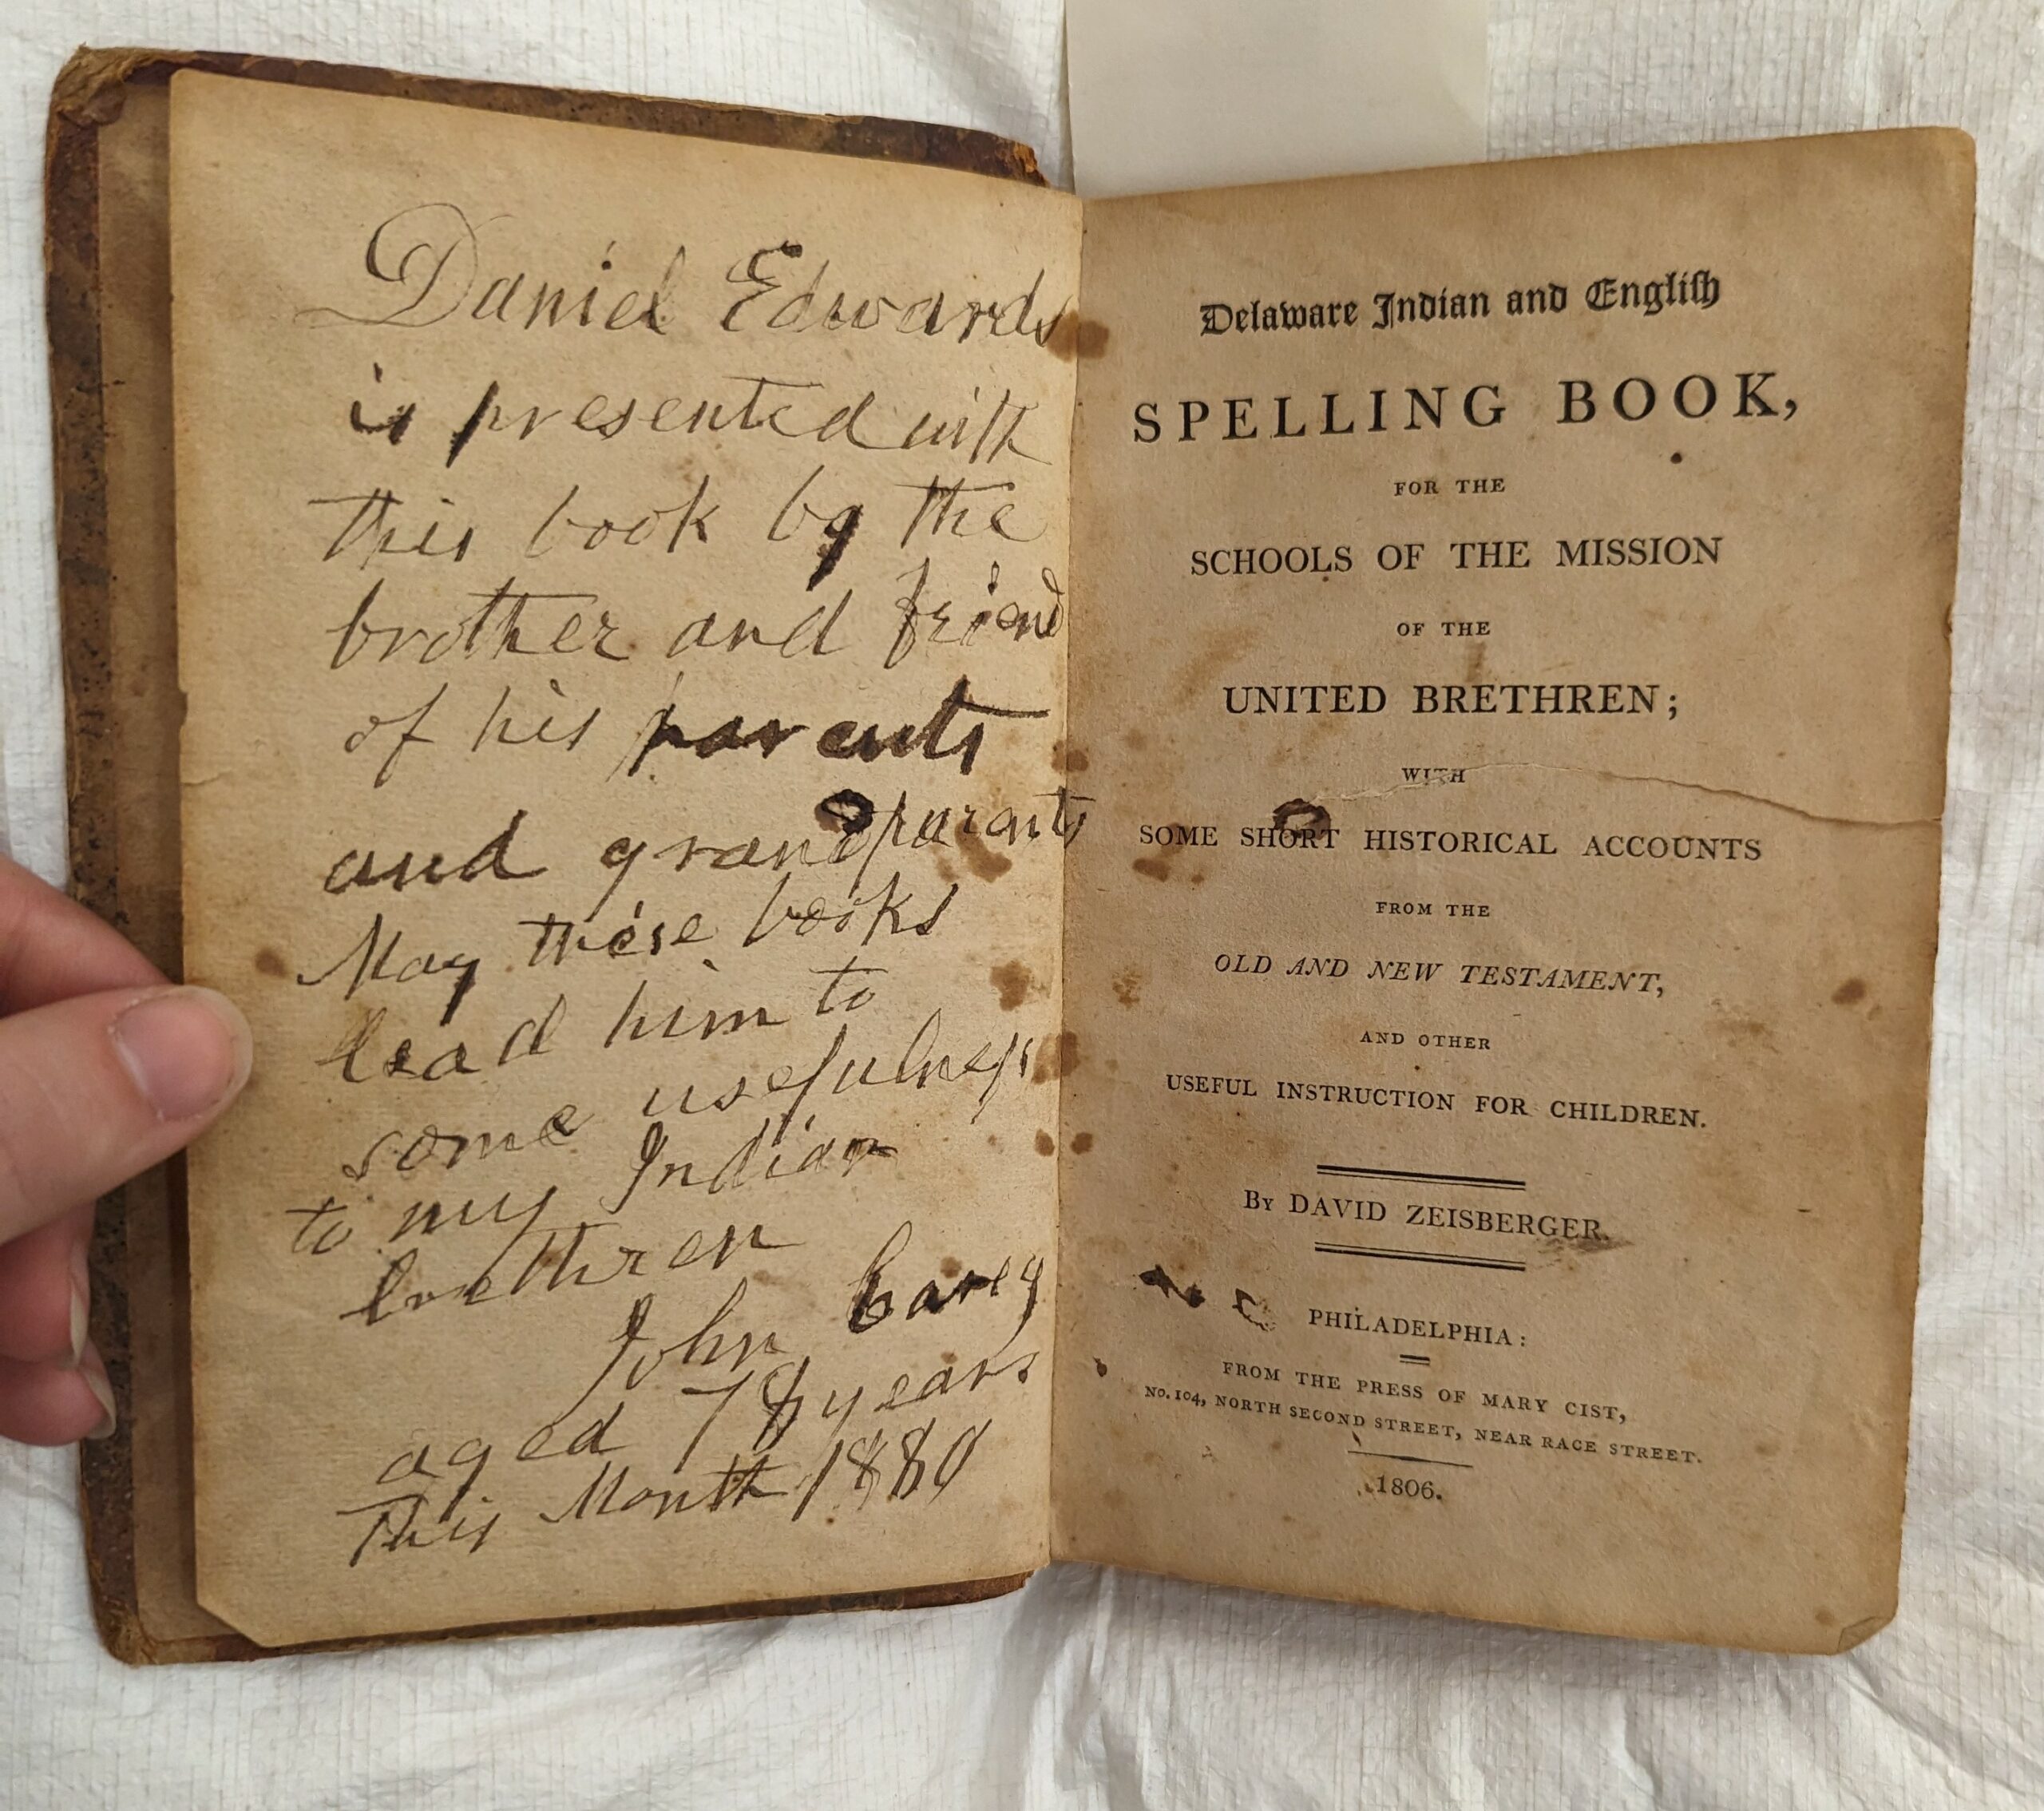 Daniel Edwards
is presented with
this book by the
brother and friend
of his parents
and grandparents
May these books
lead him to
some usefulness
to my Indian
brethren
John Carey
aged 78 years
This Month 1880
Delaware Indian and Engliſh
SPELLING BOOK,
FOR THE
SCHOOLS OF THE MISSION
OF THE
UNITED BRETHREN;
WITH
SOME SHORT HISTORICAL ACCOUNTS
FROM THE
OLD AND NEW TESTAMENT,
AND OTHER
USEFUL INSTRUCTION FOR CHILDREN.
By DAVID ZEISBERGER.
PHILADELPHIA:
FROM THE PRESS OF MARY CIST,
No. 104, NORTH SECOND STREET, NEAR RACE STREET.
1806.